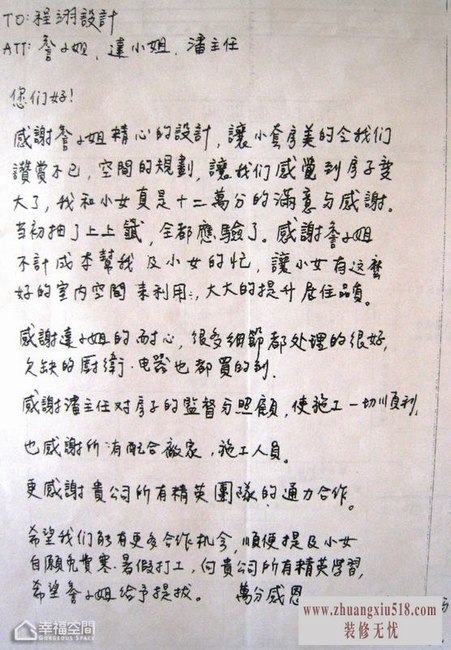 TO: 程翊設計
ATT: 詹小姐、達小姐、潘主任
您们好!
感謝詹小姐精心的設計,讓小套房美的令我们
讚賞不已,空間的規劃,讓我们感覺到房子變
大了,我和小女真是十二萬分的滿意与感謝。
当初抽了上上籤,全都應驗了。感謝詹小姐
不計成本幫我及小女的忙,讓小女有这麼
好的室内空間來利用,大大的提升居住品質。
感謝達小姐的耐心,很多細節都处理的很好,
欠缺的厨衛.电器也都買的到.
感謝潘主任对房子的監督与照顧,使施工一切順利,
也感謝所有配合廠家,施工人員。
更感謝貴公司所有精英團隊的通力合作。
希望我们能有更多合作机会,順便提及小女
自願免費寒.暑假打工,向貴公司所有精英學習,
希望詹小姐給予提拔。 萬分感恩
幸福空間
GORGEOUS SPACE
www.zhuangxiu518.com
装修无忧